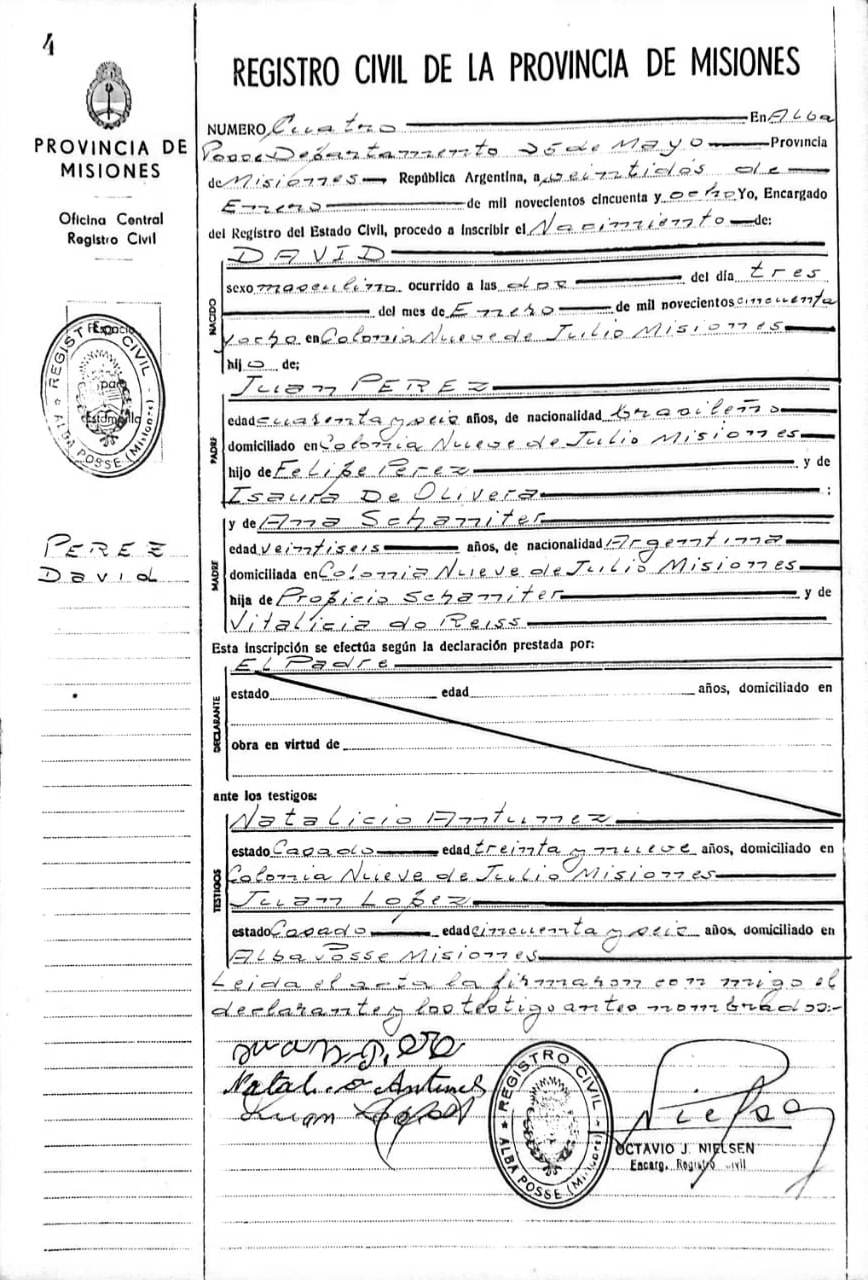 4
PROVINCIA DE
MISIONES
Oficina Central
Registro Civil
REGISTRO CIVIL
ALBA POSSE (Misiones)
Espacio
para
Estampilla
PEREZ
David
REGISTRO CIVIL DE LA PROVINCIA DE MISIONES
NUMERO Cuatro En Alba
Posse Departamento 25 de Mayo Provincia
de Misiones República Argentina, a veintidós de
Enero de mil novecientos cincuenta y ocho Yo, Encargado
del Registro del Estado Civil, procedo a inscribir el Nacimiento de:
NACIDO
DAVID
sexo masculino ocurrido a las dos del día tres
del mes de Enero de mil novecientos cincuenta
y ocho en Colonia Nueve de Julio Misiones
hijo de;
PADRE
Juan PEREZ
edad cuarenta y seis años, de nacionalidad brasileño
domiciliado en Colonia Nueve de Julio Misiones
hijo de Felipe Perez y de
Isaura De Olivera :
MADRE
y de Ana Schamiter
edad veintiseis años, de nacionalidad Argentina
domiciliada en Colonia Nueve de Julio Misiones
hija de Proficio Schamiter y de
Vitalicia do Reiss
Esta inscripción se efectúa según la declaración prestada por:
DECLARANTE
El Padre
estado edad años, domiciliado en
obra en virtud de
ante los testigos:
TESTIGOS
Natalicio Antunez
estado Casado edad treinta y nueve años, domiciliado en
Colonia Nueve de Julio Misiones
Juan Lopez
estado Casado edad cincuenta y seis años, domiciliado en
Alba Posse Misiones
Leida el acta la firmaron con migo el
declarante y los testigo antes nombrados:-
Natalicio Antunes
Juan Lopez
REGISTRO CIVIL
ALBA POSSE (Misiones)
Nielsen
OCTAVIO J. NIELSEN
Encarg. Registro Civil